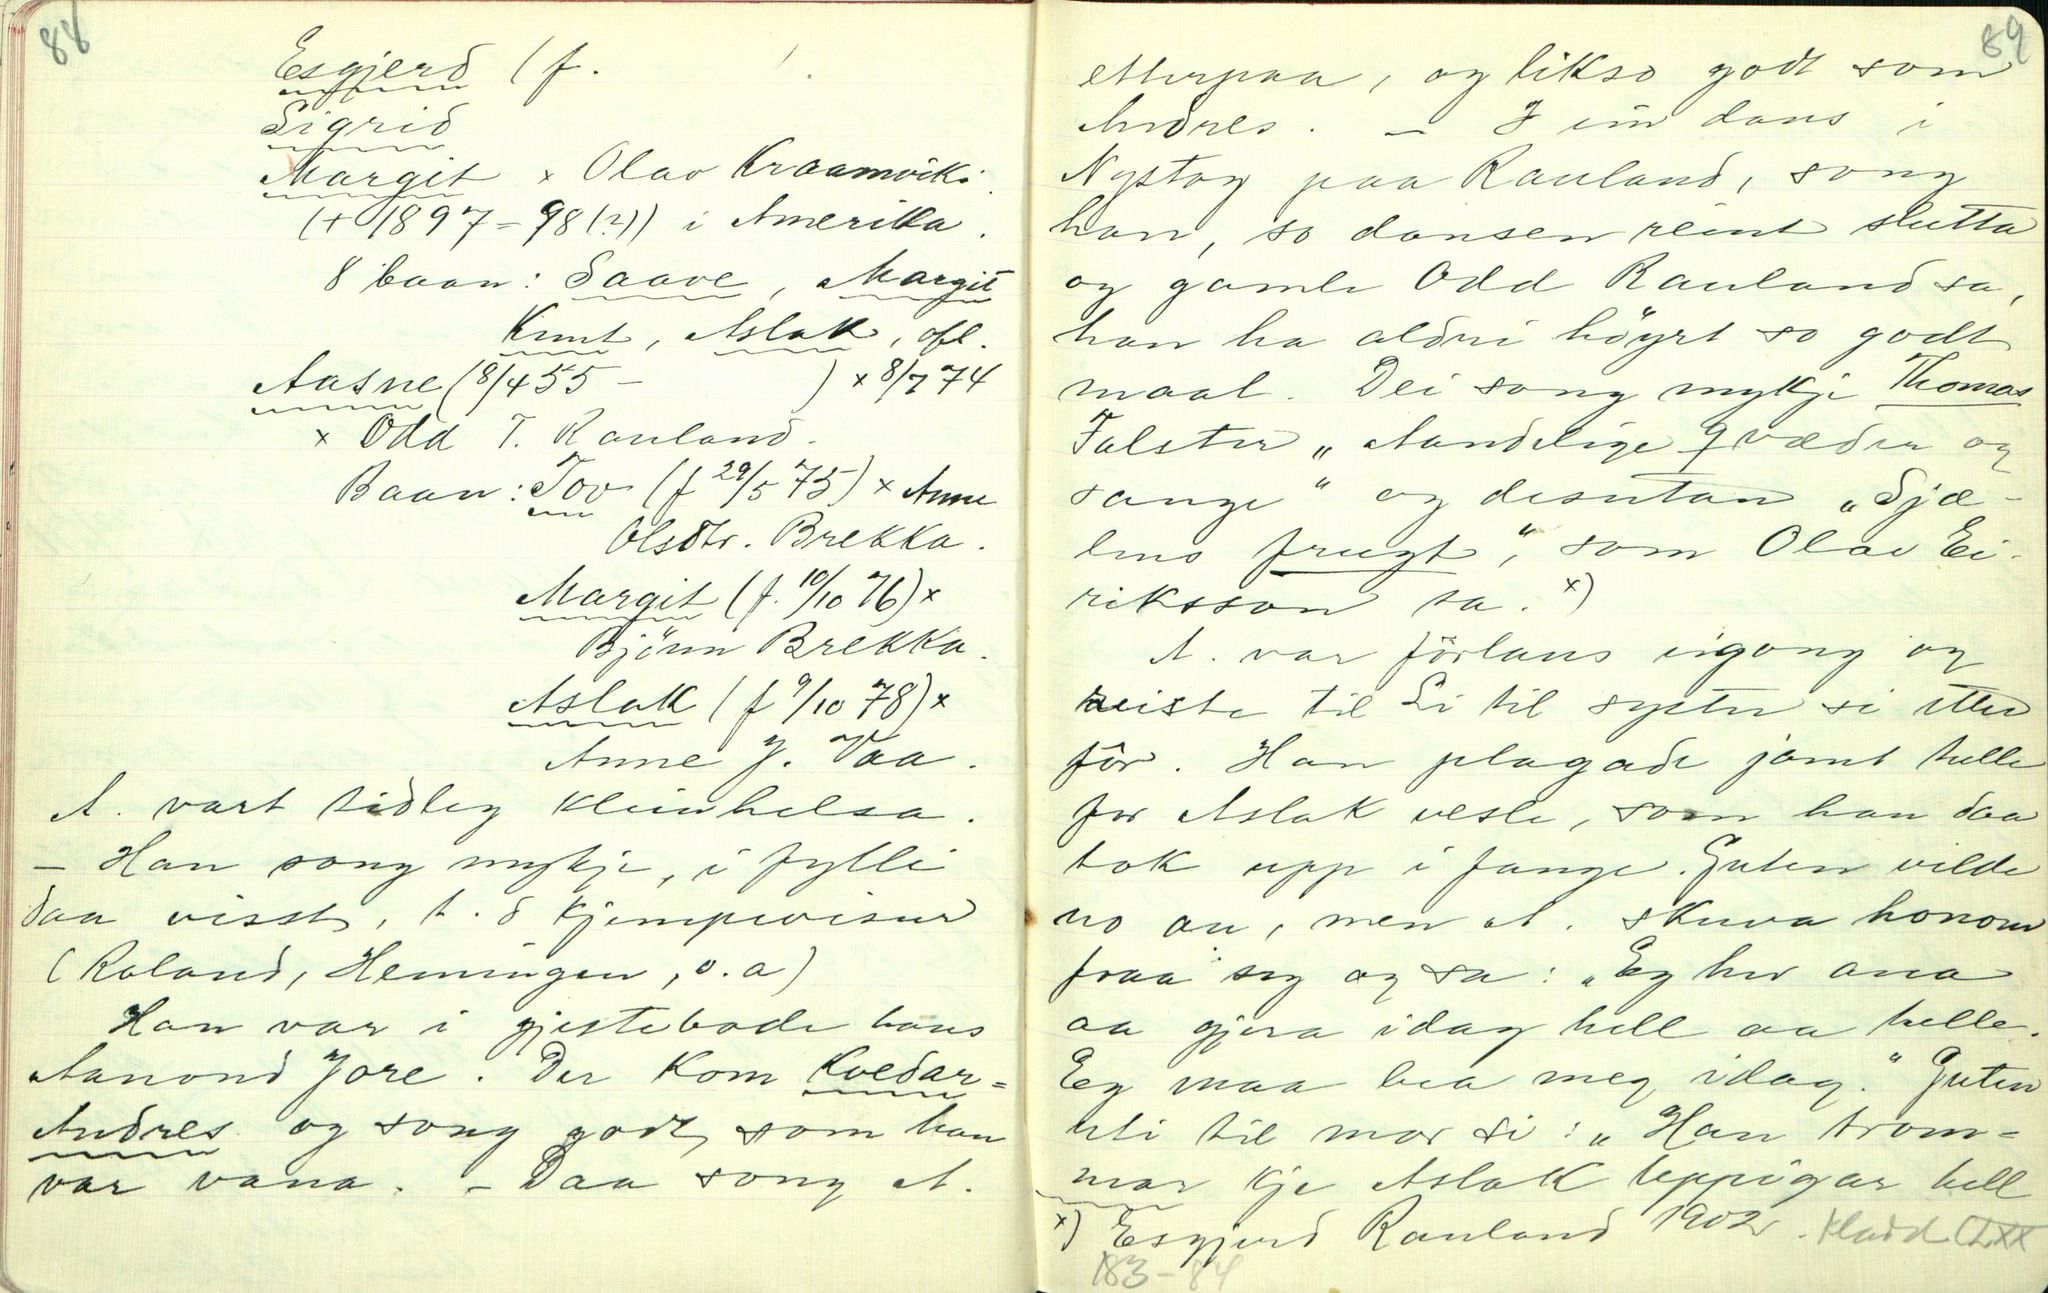 88
Esgjerd (f. ).
Sigrid
Margit x Olav Kraamviki.
(+ 1897-98(?)) i Amerika.
8 baan: Saave, Margit
Knut, Aslak, ofl.
Aasne (8/4 55 - ) x 8/7 74
x Odd T. Rauland.
Baan: Tov (f 29/5 75) x Anne
Olsdtr. Brekka.
Margit (f. 10/10 76) x
Björn Brekka.
Aslak (f 9/10 78) x
Anne J. Vaa.
A. vart tidleg kleinhelsa.
- Han song mykje, i fylli
daa visst, t. d kjempevisur
(Roland, Hemingen, o. a)
Han var i gjestebode hans
Aanond Jore. Der kom Kvedar=
Andres og song godt, som han
var vana. - Daa song A.
89
etterpaa, og likso godt som
Andres. - I ein dans i
Nystog paa Rauland, song
han, so dansen reint slutta
og gamle Odd Rauland sa,
han ha aldri höyrt so godt
maal. Dei song mykje Thomas
Falster „Aandelige Qvæder og
sange" og desutan „Sjæ-
lens frugt", som Olav Ei-
riksson sa. x)
A. var förlaus eigong og
reiste til Li til syster si etter
för. Han plagade jamt tulle
for Aslak vesle, som han daa
tok upp i fange. Guten vilde
no au, men A. skuva honom
fraa seg og sa: „Eg hev ana
aa gjera idag hell aa tulle.
Eg maa bea meg idag." Guten
uti til mor si: „Han trom=
mar kje Aslak teppigar hell
x) Esgjerd Rauland 1902. Kladd CLXX
183-84